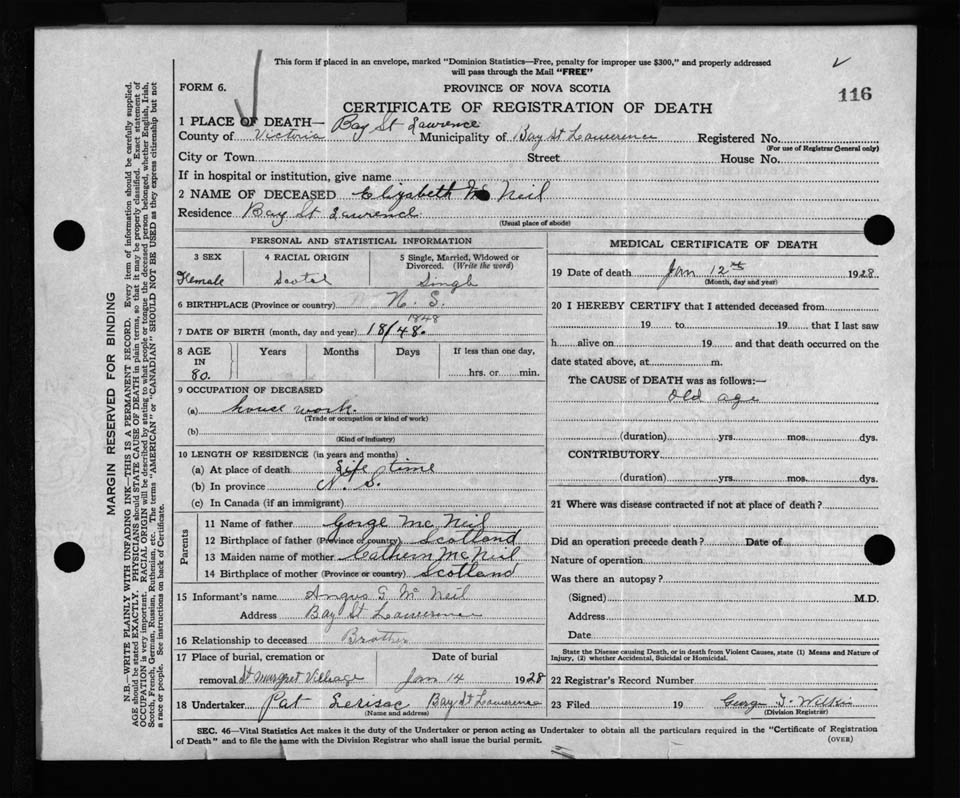 This form if placed in an envelope, marked "Dominion Statistics—Free, penalty for improper use $300," and properly addressed
will pass through the Mail "FREE"
FORM 6.
PROVINCE OF NOVA SCOTIA
116
CERTIFICATE OF REGISTRATION OF DEATH
1 PLACE OF DEATH— Bay St Lawrence
County of Victoria Municipality of Bay St Lawrence Registered No.
(For use of Registrar General only)
City or Town Street House No.
If in hospital or institution, give name
2 NAME OF DECEASED Elizabeth Mc Neil
Residence Bay St Lawrence
(Usual place of abode)
PERSONAL AND STATISTICAL INFORMATION
3 SEX 4 RACIAL ORIGIN 5 Single, Married, Widowed or
Divorced. (Write the word)
Female Scotch Single
6 BIRTHPLACE (Province or country) N. S.
1848
7 DATE OF BIRTH (month, day and year) 18/48.
8 AGE Years Months Days If less than one day,
IN
80. hrs. or min.
9 OCCUPATION OF DECEASED
(a) house work.
(Trade or occupation or kind of work)
(b)
(Kind of industry)
10 LENGTH OF RESIDENCE (in years and months)
(a) At place of death Life time
(b) In province N. S.
(c) In Canada (if an immigrant)
Parents
11 Name of father Gorge Mc Neil
12 Birthplace of father (Province or country) Scotland
13 Maiden name of mother Cathern McNeil
14 Birthplace of mother (Province or country) Scotland
15 Informant's name Angus G Mc Neil
Address Bay St Lawrence
16 Relationship to deceased Brother
17 Place of burial, cremation or Date of burial
removal St Margret Village Jan 14 1928
18 Undertaker Pat Bay St Lawrence
(Name and address)
MEDICAL CERTIFICATE OF DEATH
19 Date of death Jan 12th 1928.
(Month, day and year)
20 I HEREBY CERTIFY that I attended deceased from
19 to 19 that I last saw
h alive on 19 and that death occurred on the
date stated above, at m.
The CAUSE of DEATH was as follows:—
Old age
(duration) yrs. mos. dys.
CONTRIBUTORY
(duration) yrs. mos. dys.
21 Where was disease contracted if not at place of death?
Did an operation precede death? Date of
Nature of operation
Was there an autopsy?
(Signed) M.D.
Address
Date
State the Disease causing Death, or in death from Violent Causes, state (1) Means and Nature of
Injury, (2) whether Accidental, Suicidal or Homicidal.
22 Registrar's Record Number
23 Filed 19 George
(Division Registrar)
SEC. 46—Vital Statistics Act makes it the duty of the Undertaker or person acting as Undertaker to obtain all the particulars required in the "Certificate of Registration
of Death" and to file the same with the Division Registrar who shall issue the burial permit.
(OVER)
MARGIN RESERVED FOR BINDING
N.B.—WRITE PLAINLY WITH UNFADING INK—THIS IS A PERMANENT RECORD. Every item of information should be carefully supplied.
AGE should be stated EXACTLY. PHYSICIANS should STATE CAUSE OF DEATH in plain terms, so that it may be properly classified. Exact statement of
OCCUPATION is very important. RACIAL ORIGIN will be described by stating to what people or tongue the deceased person belonged, whether English, Irish,
Scotch, French, German, Russian, Ruthenian, etc. The terms "AMERICAN" or "CANADIAN" SHOULD NOT BE USED as they express citizenship but not
a race or people. See instructions on back of Certificate.